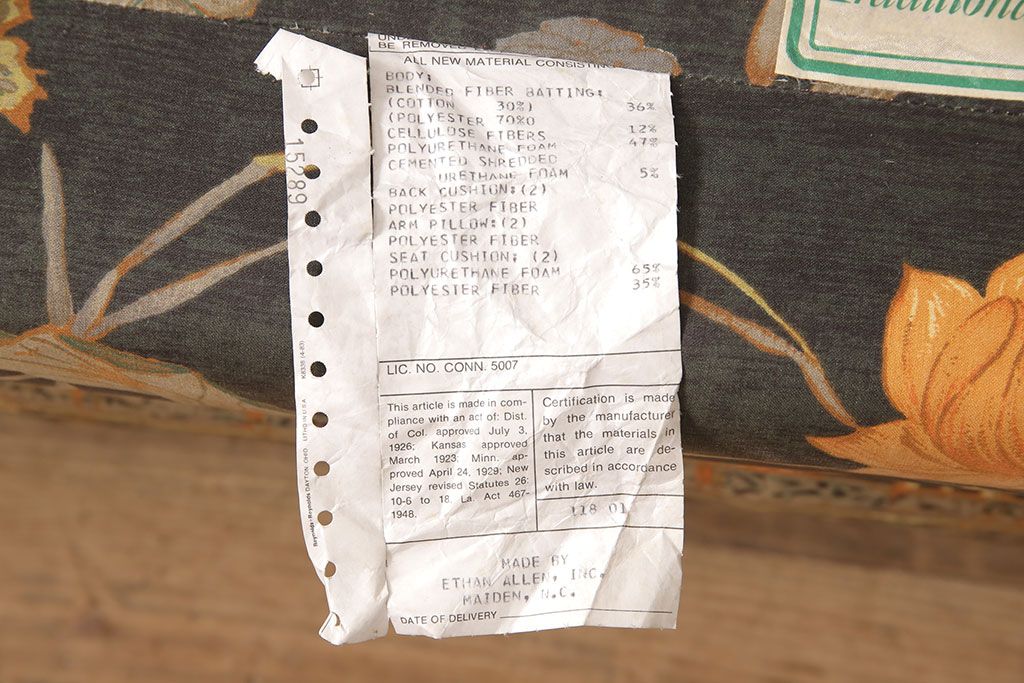 BE REMOVED
ALL NEW MATERIAL CONSISTIN
BODY:
BLENDED FIBER BATTING: 36%
(COTTON 30%)
(POLYESTER 70%0
CELLULOSE FIBERS 12%
POLYURETHANE FOAM 47%
CEMENTED SHREDDED
URETHANE FOAM 5%
BACK CUSHION:(2)
POLYESTER FIBER
ARM PILLOW:(2)
POLYESTER FIBER
SEAT CUSHION: (2)
POLYURETHANE FOAM 65%
POLYESTER FIBER 35%
LIC. NO. CONN. 5007
This article is made in com-
pliance with an act of: Dist.
of Col. approved July 3,
1926; Kansas approved
March 1923; Minn. ap-
proved April 24, 1929; New
Jersey revised Statutes 26:
10-6 to 18. La. Act 467-
1948.
Certification is made
by the manufacturer
that the materials in
this article are de-
scribed in accordance
with law.
118 01
MADE BY
ETHAN ALLEN, INC.
MAIDEN, N.C.
DATE OF DELIVERY
15289
Reynolds+Reynolds DAYTON, OHIO. LITHO IN U.S.A. K8338 (4-83)
Traditional